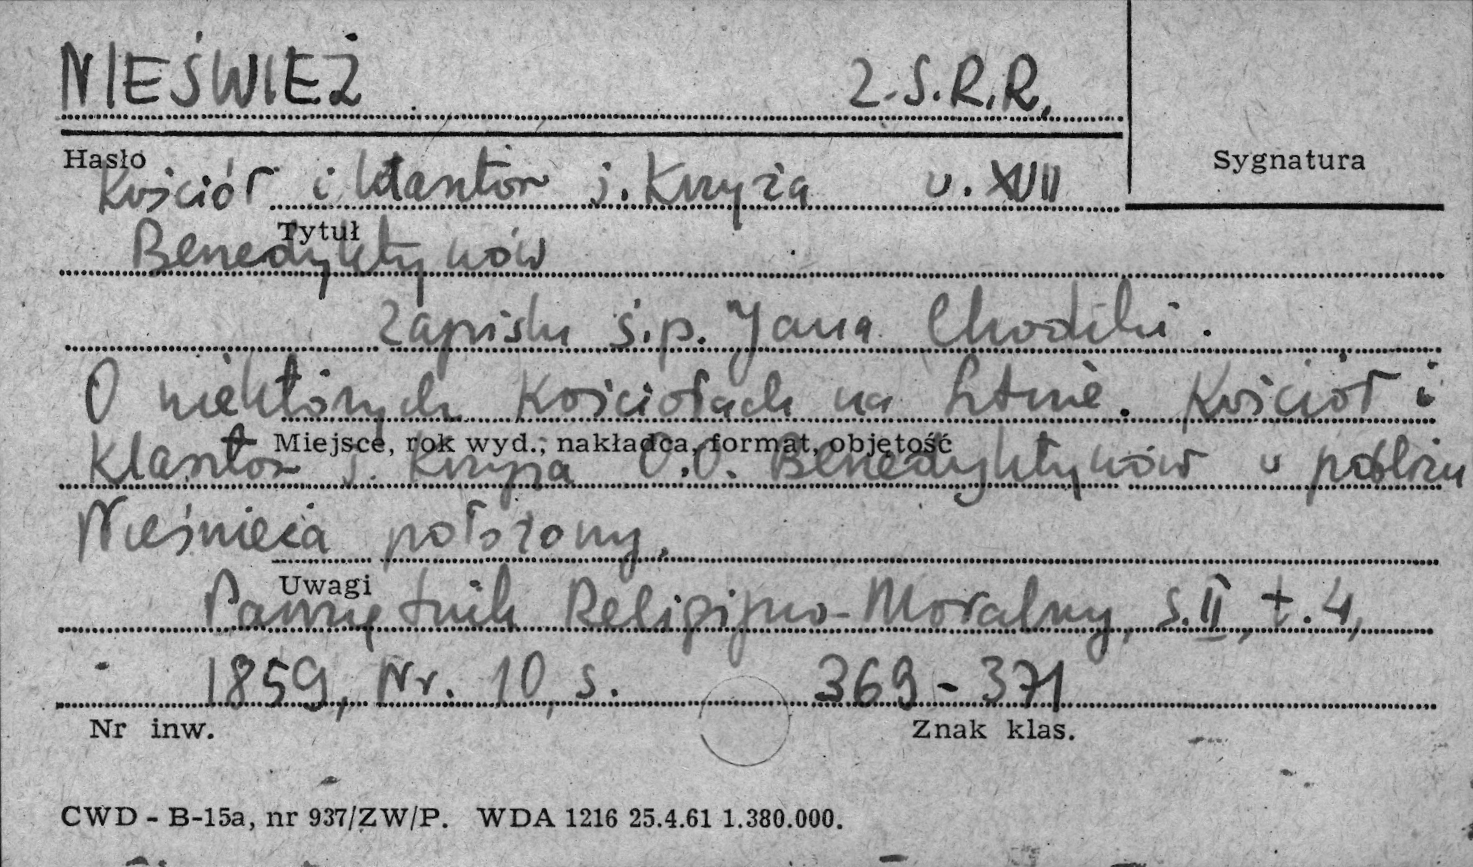 NIEŚWIEŻ Z.S.R.R.
Hasło
Sygnatura
Kościół i klasztor ś. Krzyża w. XVII
Tytuł
Benedyktynów
Zapiski ś.p. Jana Chodźki.
O niektórych Kościołach na Litwie. Kościół i
Miejsce, rok wyd., nakładca, format, objętość
Klasztor ś. Krzyża O.O. Benedyktynów w pobliżu
Nieświeża położony,
Uwagi
Pamiętnik Religijno-Moralny, S.II, t.4,
1859, Nr. 10, s. 369-371
Nr inw.
Znak klas.
CWD - B-15a, nr 937/ZW/P. WDA 1216 25.4.61 1.380.000.